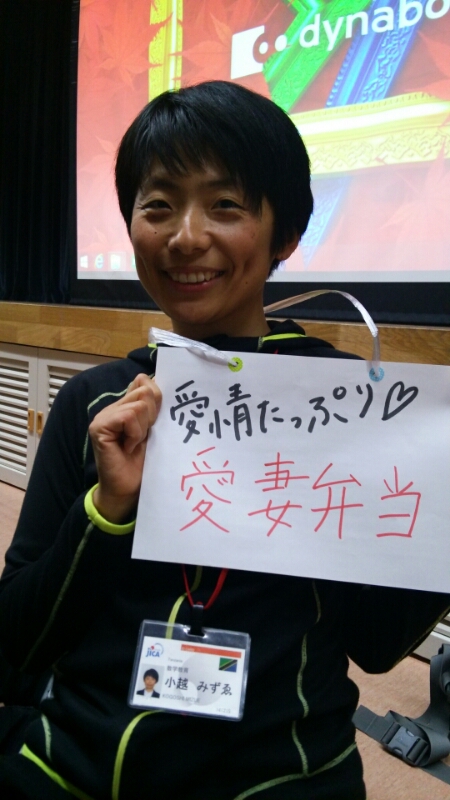 dynabo
愛情たっぷり♡
愛妻弁当
JICA
数学教育
小越 みずゑ